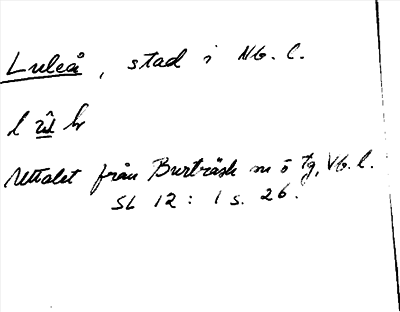 Luleå, stad i Nb. l.
Uttalet från Burträsk m ö tg, Vb. l.
SL 12 : 1 s. 26.